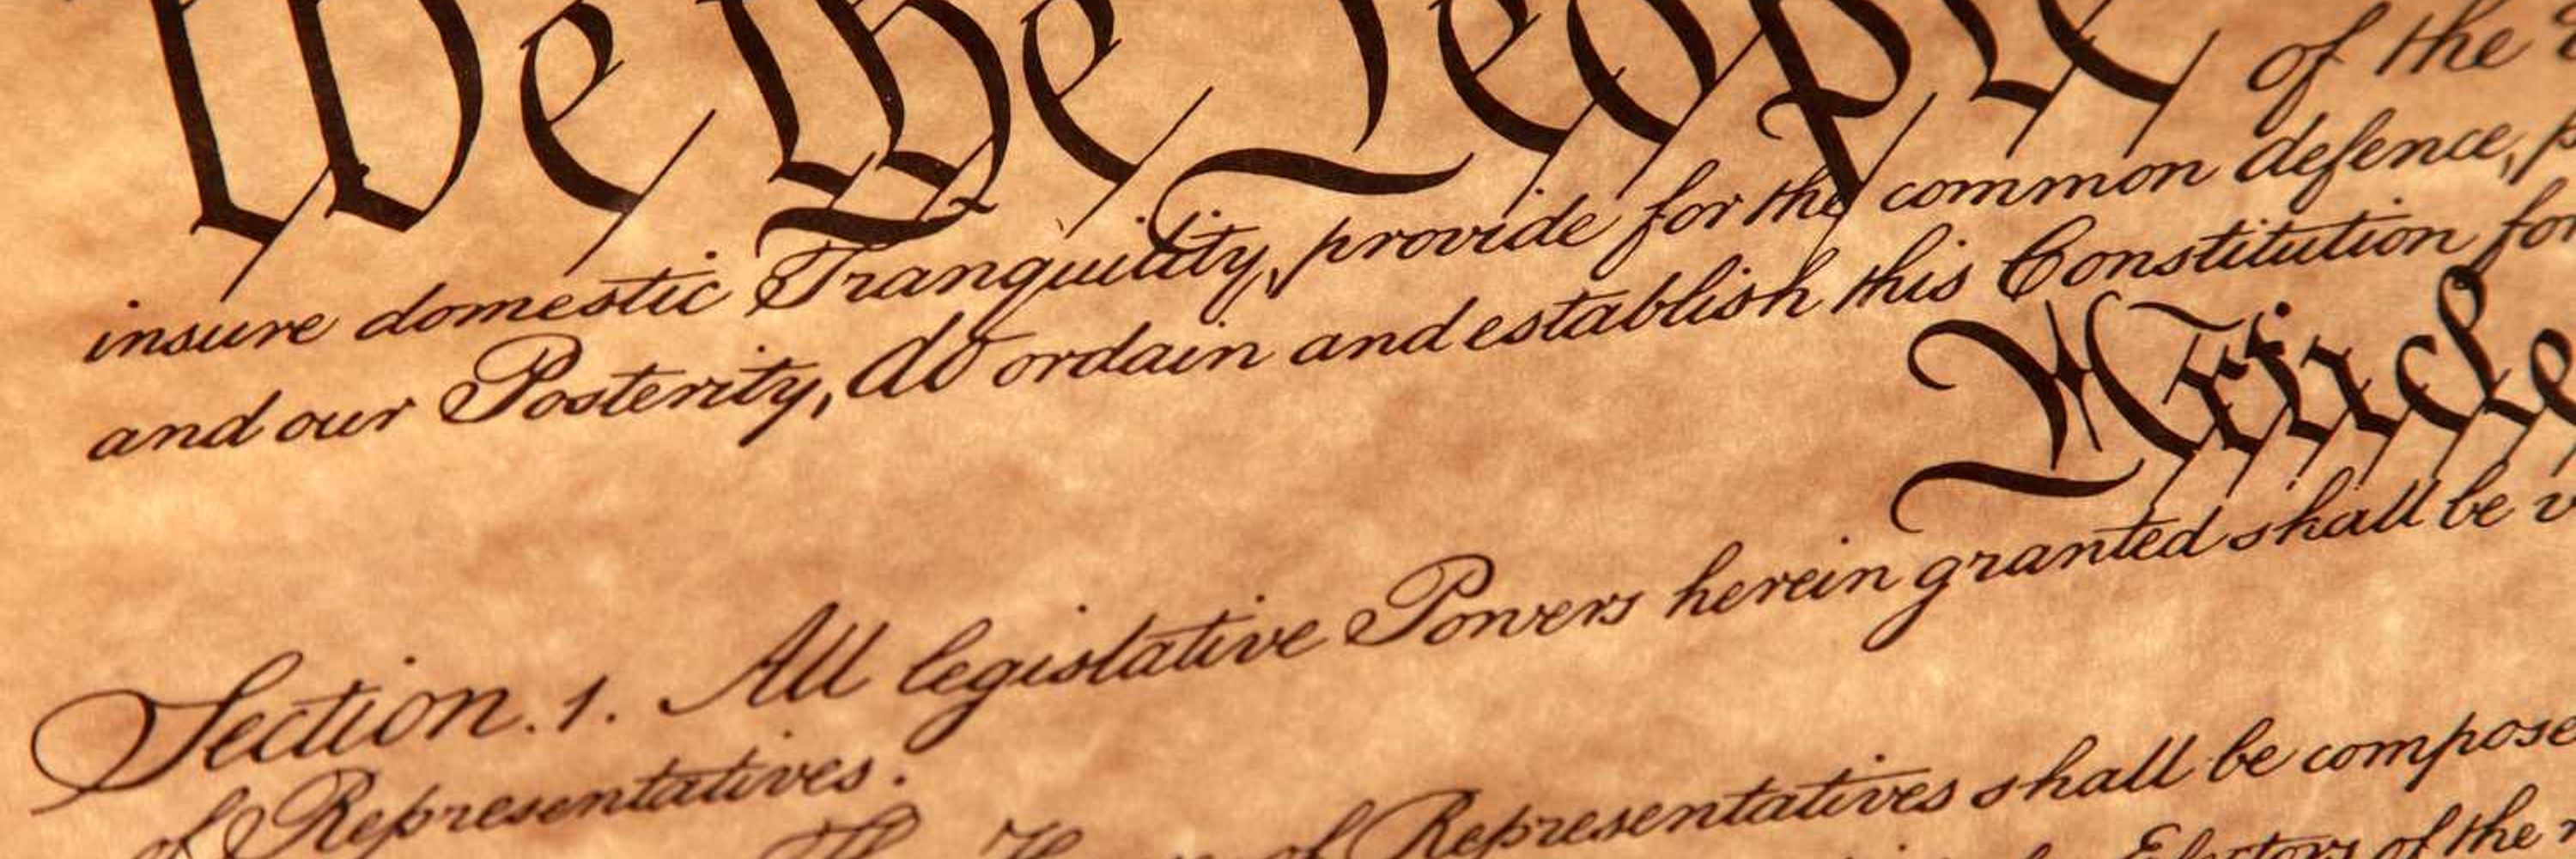 We the People of the
insure domestic Tranquility, provide for the common defence,
and our Posterity, do ordain and establish this Constitution for
Article
Section. 1. All legislative Powers herein granted shall be
of Representatives.
of Representatives shall be compose
Electors of the